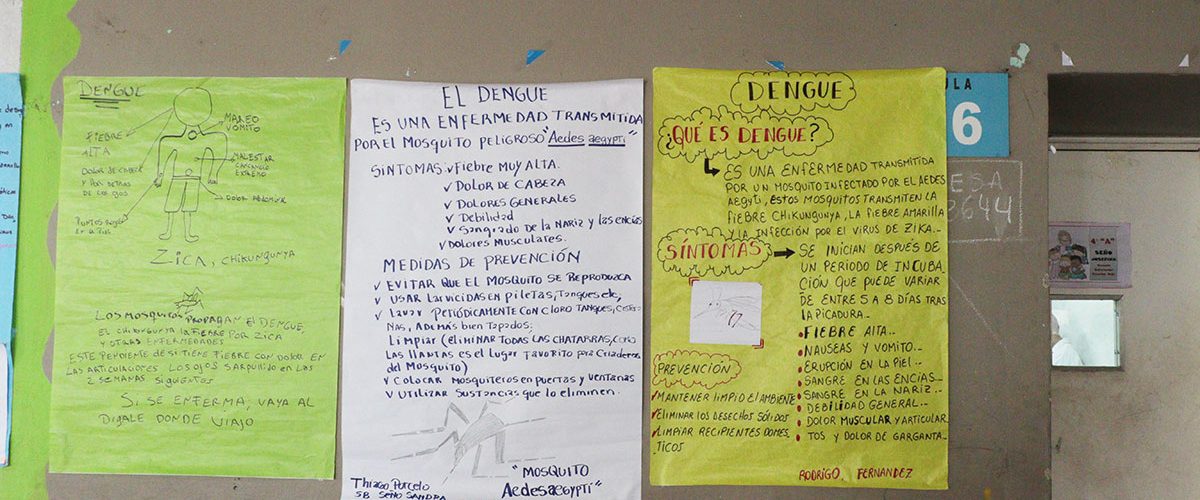 DENGUE
FIEBRE
ALTA
DOLOR DE CABEZA
Y POR DETRAS
DE LOS OJOS
PUNTOS ROJOS
EN LA PIEL
MAREO
VOMITO
MALESTAR
CANSANCIO
EXTREMO
DOLOR ABDOMINAL
ZICA, CHIKUNGUNYA
LOS MOSQUITOS PROPAGAN EL DENGUE,
EL CHIKUNGUNYA LA FIEBRE POR ZICA
Y OTRAS ENFERMEDADES
ESTE PENDIENTE DE SI TIENE FIEBRE CON DOLOR EN
LAS ARTICULACIONES LOS OJOS SARPULLIDO EN LAS
2 SEMANAS SIGUIENTES
SI SE ENFERMA, VAYA AL
DIGALE DONDE VIAJO
EL DENGUE
ES UNA ENFERMEDAD TRANSMITIDA
POR EL MOSQUITO PELIGROSO "Aedes aegypti"
SINTOMAS: ✓ Fiebre MUY ALTA.
✓ DOLOR DE CABEZA
✓ DOLORES GENERALES
✓ Debilidad
✓ Sangrado de la NARIZ y las encías
✓ Dolores Musculares.
MEDIDAS DE PREVENCIÓN
✓ EVITAR QUE EL MOSQUITO SE REPRODUZCA
✓ USAR Larvicidas en piletas, Tanques etc,
✓ Lavar Periódicamente con cloro Tanques, Cister
Nas, Además bien Tapados;
Limpiar (eliminar todas las chatarras, como
Las llantas es el lugar favorito por Criaderos
del Mosquito)
✓ Colocar Mosquiteros en puertas y ventanas
✓ Utilizar Sustancias que lo eliminen.
"MOSQUITO
Aedesaegypti"
Thiago Porcelo
5B Seño SANDRA
DENGUE
¿QUÉ ES DENGUE?
ES UNA ENFERMEDAD TRANSMITIDA
POR UN MOSQUITO INFECTADO POR EL AEDES
AEgyTi, ESTOS MOSQUITOS TRANSMITEN LA
FIEBRE CHIKUNGUNYA, LA FIEBRE AMARILLA
Y LA INFECCIÓN POR EL VIRUS DE ZIKA..
SÍNTOMAS
SE INICIAN DESPUÉS DE
UN PERIODO DE INCUBA
CIÓN QUE PUEDE VARIAR
DE ENTRE 5 A 8 DÍAS TRAS
LA PICADURA..
• FIEBRE ALTA..
• NAUSEAS Y VOMITO..
• ERUPCIÓN EN LA PIEL..
• SANGRE EN LAS ENCÍAS..
• SANGRE EN LA NARIZ..
• DEBILIDAD GENERAL..
• DOLOR MUSCULAR Y ARTICULAR
• TOS Y DOLOR DE GARGANTA..
PREVENCIÓN
✓ MANTENER LIMPIO EL AMBIENTE
✓ ELIMINAR LOS DESECHOS SÓLIDOS
✓ LIMPIAR RECIPIENTES DOMES
TICOS
RODRIGO FERNANDEZ
ULA
6
ESA
3644
4° "A"
SEÑO